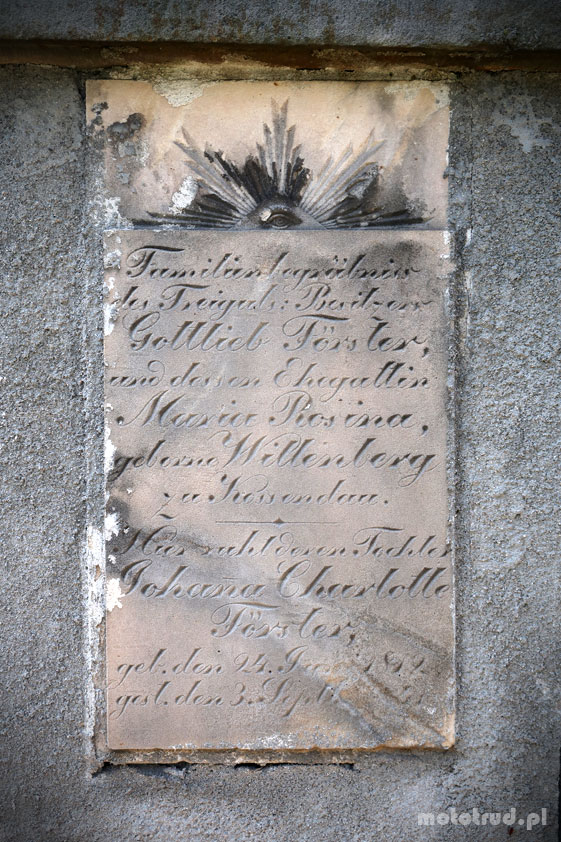 Familienbegräbniss
des Freiguts: Besitzers
Gottlieb Förster,
und dessen Ehegattin
Maria Rosina,
geborne Willenberg
zu Kossendau.
Hier ruht deren Tochter
Johaña Charlotte
Förster,
geb. den 24.
gest. den 3. Sept
mototrud.pl